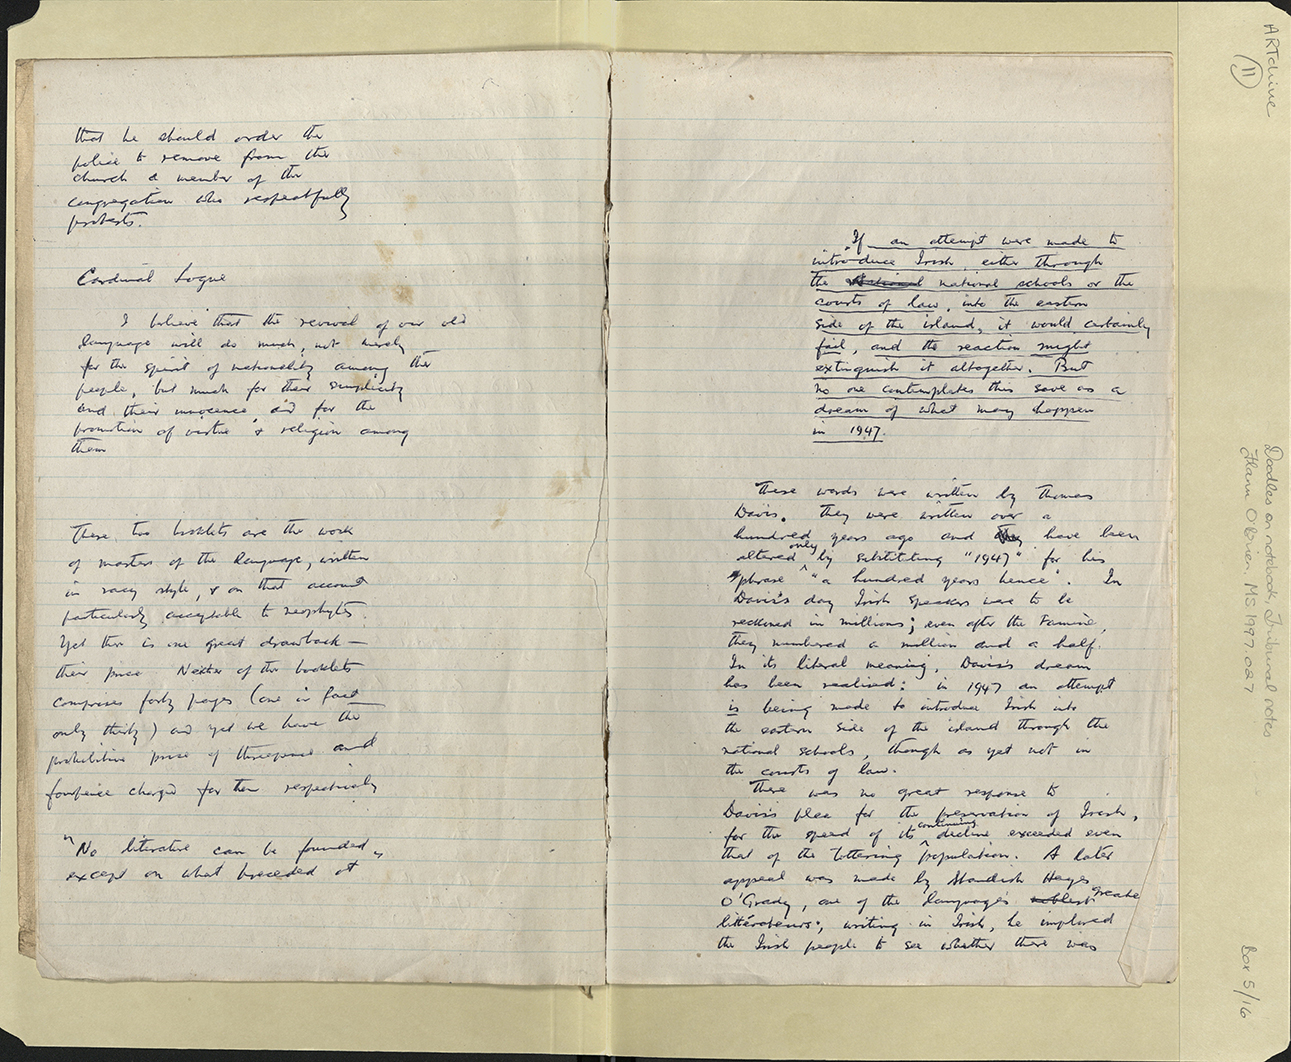 that he should order the
police to remove from the
church a member of the
congregation who respectfully
protests.
Cardinal Logue
I believe that the revival of our old
language will do much, not merely
for the spirit of nationality among the
people, but much for their simplicity
and their innocence, and for the
promotion of virtue & religion among
them
These two booklets are the work
of masters of the language, written
in racy style, & on that account
particularly acceptable to neophytes.
Yet there is one great drawback –
their price. Neither of the booklets
comprises forty pages (one in fact
only thirty) and yet we have the
prohibitive price of threepence and
fourpence charged for them respectively
"No literature can be founded,
except on what preceded it
If an attempt were made to
introduce Irish, either through
the national national schools or the
courts of law, into the eastern
side of the island, it would certainly
fail, and the reaction might
extinguish it altogether. But
no one contemplates this save as a
dream of what may happen
in 1947.
These words were written by Thomas
Davis. They were written over a
hundred years ago and they have been
altered only by substituting "1947" for his
phrase "a hundred years hence". In
Davis's day Irish speakers were to be
reckoned in millions; even after the Famine,
they numbered a million and a half.
In its literal meaning, Davis's dream
has been realised: in 1947 an attempt
is being made to introduce Irish into
the eastern side of the island through the
national schools, though as yet not in
the courts of law.
There was no great response to
Davis's plea for the preservation of Irish,
for the speed of its continuing decline exceeded even
that of the tottering population. A later
appeal was made by Standish Hayes
O'Grady, one of the language's noblest greatest
littérateurs; writing in Irish, he implored
the Irish people to see whether there was
ARTchive
(11)
Doodles on notebook, Tribunal notes
Flann O'Brien. MS.1997.027
Box 5/16